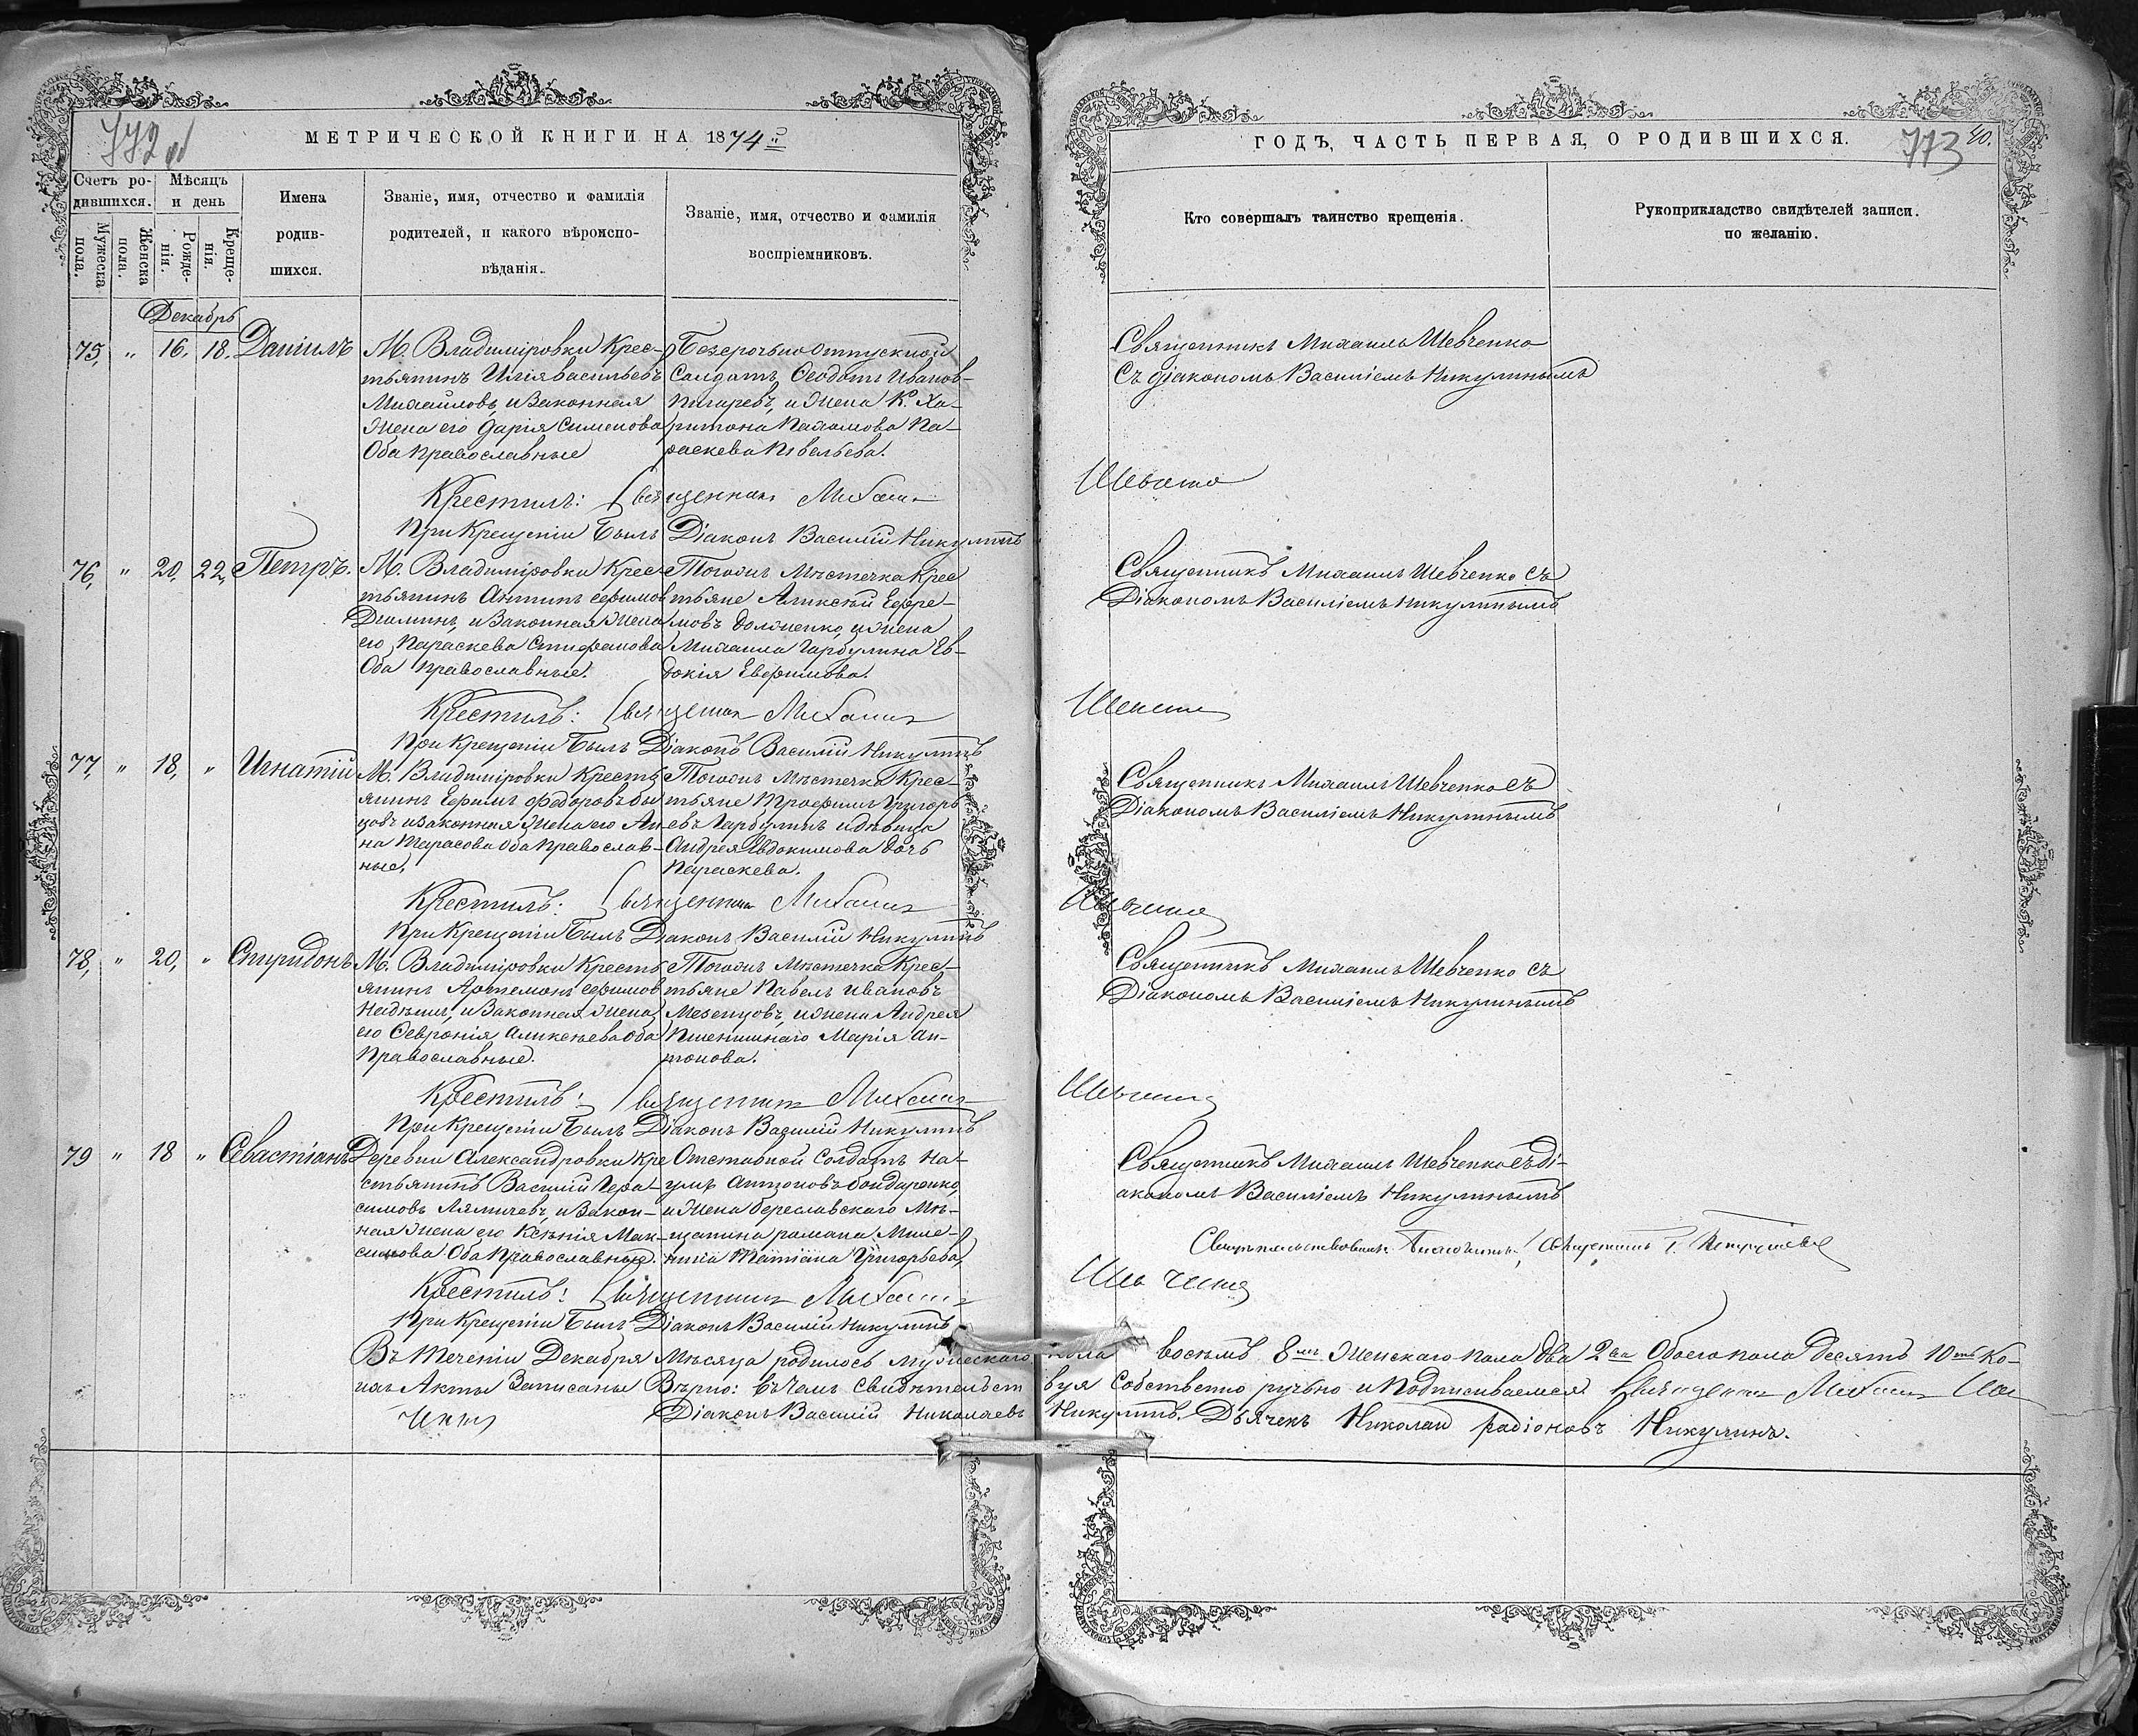 МЕТРИЧЕСКОЙ КНИГИ НА 1874й
Счетъ ро-
дившихся.
Мужеска
пола.
Женска
пола.
Мѣсяцъ
и день
Рожде-
нія.
Креще-
нія.
Имена
родив-
шихся.
Званіе, имя, отчество и фамилія
родителей, и какого вѣроиспо-
вѣданія.
Званіе, имя, отчество и фамилія
воспріемниковъ.
Декабрь
75, " 16. 18. Даніилъ
М. Владиміровки Крес-
тьянинъ Илія Васильевъ
Михаиловъ, и Законная
Жена его Дарія Сименова
Оба православные
Безсрочно Отпускной
Солдатъ Ѳеодотъ Иванов-
, и Жена К. Ха-
ритона Па-
раскева
Крестилъ: Священникъ Михаилъ
При Крещеніи Былъ Діаконъ Василій Никулинъ
76, " 20, 22, Петръ.
М. Владиміровки Крес-
тьянинъ Антинъ Ефимов
, и Законная Жена
его Параскева Стифанова
Оба православные.
Тогожъ Мѣстечка Крес
тьяне Аликсѣй Ефре-
мовъ Долженко, и Жена
Михаила Гарбулина Ев-
докія Евфимова.
Крестилъ: Священник Михаилъ
При Крещеніи Былъ Діаконъ Василій Никулинъ
77, " 18, " Игнатій
М. Владиміровки Кресть
янинъ Ефимъ Федоровъ
и Законная Жена его Ан
на Тарасова Оба православ-
ные.
Тогожъ Мѣстечка Крес-
тьяне Трофимъ Григорь
евъ Гарбулинъ и дѣвица
Андрея Евдокимова дочь
Параскева.
Крестилъ: Священникъ Михаилъ
При Крещеніи Былъ Діаконъ Василій Никулинъ
78, " 20, " Спиридонъ
М. Владиміровки Кресть
янинъ Артемонъ Ефимов
, и Законная Жена
его Ѳевронія Аликсѣева Оба
Православные.
Тогожъ Мѣстечка Крес-
тьяне Павелъ Ивановъ
Мезенцовъ, и Жена Андрея
Пшенишнаго Марія Ан-
тонова.
Крестилъ: Священникъ Михаилъ
При Крещеніи Былъ Діаконъ Василій Никулинъ
79 " 18 " Севастіанъ
Деревни Александровки Кре
стьянинъ Василій Гера-
симовъ Лямичевъ, и Закон-
ная Жена его Ксѣнія Мак-
симова Оба Православные.
Отставной Солдатъ На-
умъ Антоновъ Бондаренко,
и Жена бериславскаго Мѣ-
щанина романа
Татіана Григорьева,
Крестилъ: Священникъ Михаилъ
При Крещеніи Былъ Діаконъ Василій Никулинъ
Въ теченіи Декабря Мѣсяца родилось мужескаго
Акты Записаны Вѣрно: въ чемъ Свидѣтельст
Діаконъ Василій Николаевъ
ГОДЪ, ЧАСТЬ ПЕРВАЯ, О РОДИВШИХСЯ.
773 40.
Кто совершалъ таинство крещенія.
Рукоприкладство свидѣтелей записи.
по желанію.
Священникъ Михаилъ Шевченко
Съ діакономъ Василіемъ Никулинымъ
Шевченко
Священникъ Михаилъ Шевченко съ
Діакономъ Василіемъ Никулинымъ
Шевченко
Священникъ Михаилъ Шевченко съ
Діакономъ Василіемъ Никулинымъ
Шевченко
Священникъ Михаилъ Шевченко съ
Діакономъ Василіемъ Никулинымъ
Шевченко
Священникъ Михаилъ Шевченко съ ді-
акономъ Василіемъ Никулинымъ
Шевченко
пола восѣмъ 8мъ Женскаго пола два 2ва Обоего пола десять 10ть Ко-
вуя Собственно ручьно и Подписиваемся Священникъ Михаилъ
Никулинъ. Дьячекъ Николай радіоновъ Никулинъ.